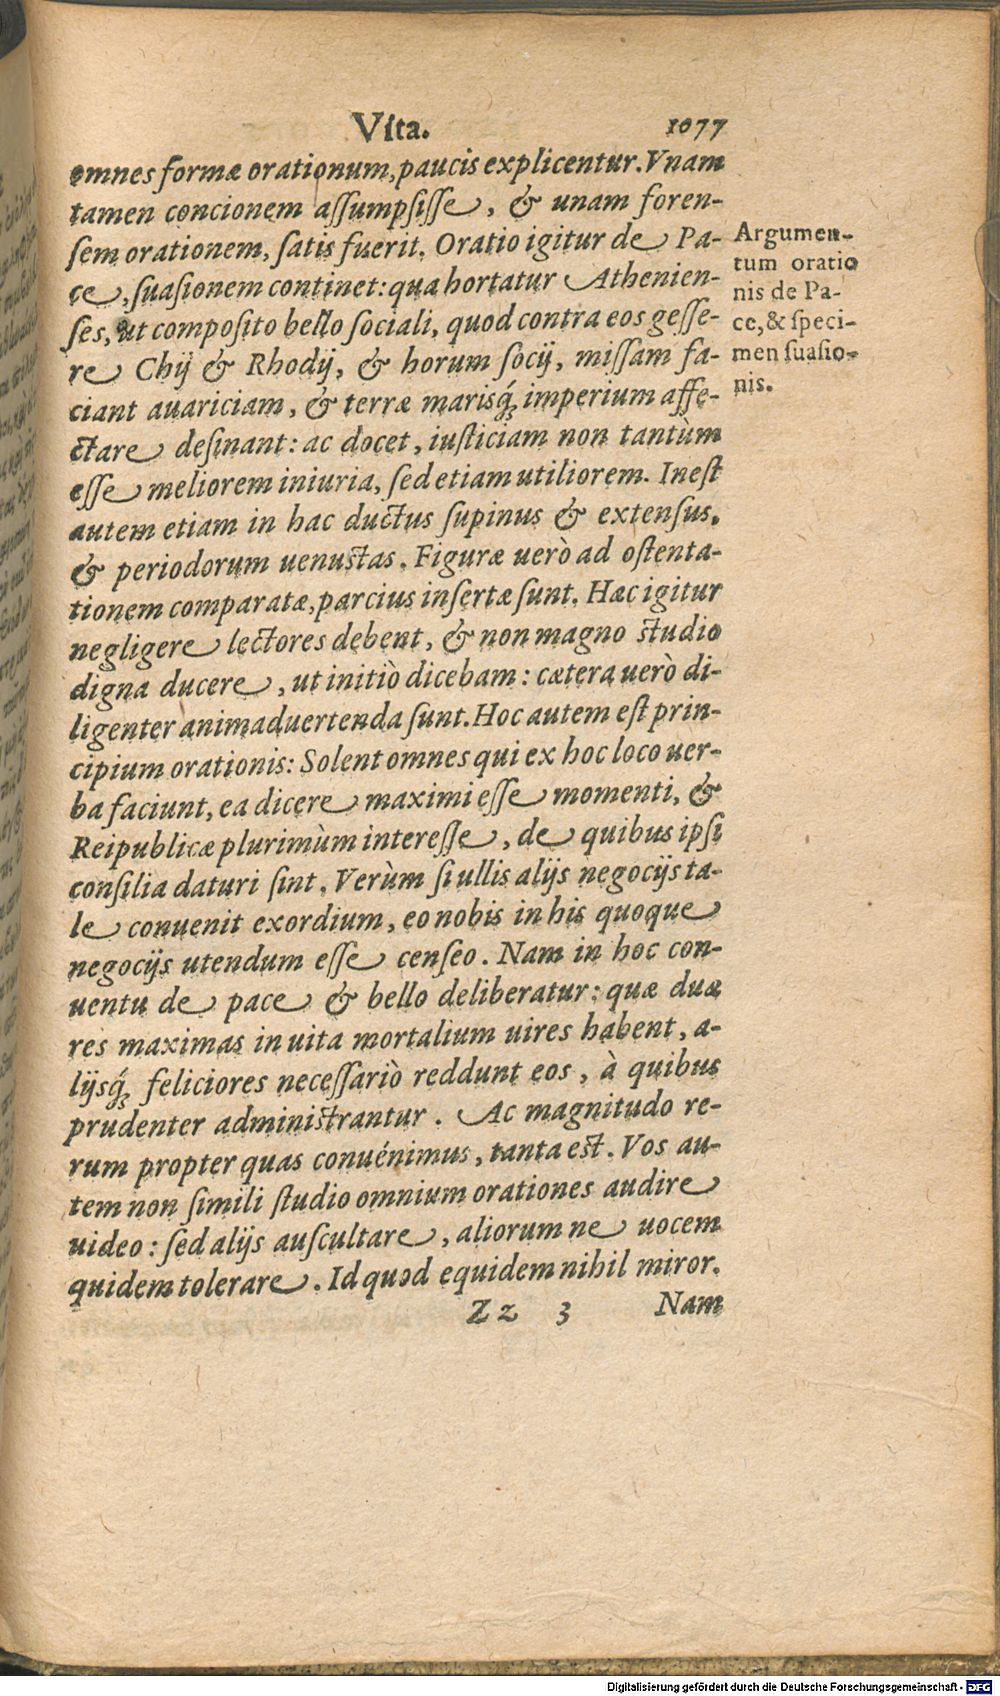 Vita. 1077
omnes formæ orationum, paucis explicentur. Vnam
tamen concionem aſſumpſiſſe, & unam foren-
ſem orationem, ſatis fuerit. Oratio igitur de Pa-
ce, ſuaſionem continet: qua hortatur Athenien-
ſes, ut compoſito bello ſociali, quod contra eos geſſe-
re Chij & Rhodij, & horum ſocij, miſſam fa-
ciant auariciam, & terræ marisq́; imperium affe-
ctare deſinant: ac docet, iuſticiam non tantùm
eſſe meliorem iniuria, ſed etiam utiliorem. Ineſt
autem etiam in hac ductus ſupinus & extenſus,
& periodorum uenustas. Figuræ uerò ad oſtenta-
tionem comparatæ, parcius inſertæ ſunt. Hæc igitur
negligere lectores debent, & non magno studio
digna ducere, ut initiò dicebam: cætera uerò di-
ligenter animaduertenda ſunt. Hoc autem eſt prin-
cipium orationis: Solent omnes qui ex hoc loco uer-
ba faciunt, ea dicere maximi eſſe momenti, &
Reipublicæ plurimùm intereſſe, de quibus ipſi
conſilia daturi ſint. Verùm ſi ullis alijs negocijs ta-
le conuenit exordium, eo nobis in his quoque
negocijs utendum eſſe cenſeo. Nam in hoc con-
uentu de pace & bello deliberatur: quæ duæ
res maximas in uita mortalium uires habent, a-
lijsq́; feliciores neceſſariò reddunt eos, à quibus
prudenter administrantur. Ac magnitudo re-
rum propter quas conuénimus, tanta est. Vos au-
tem non ſimili ſtudio omnium orationes audire
uideo: ſed alijs auſcultare, aliorum ne uocem
quidem tolerare. Id quod equidem nihil miror.
Zz 3 Nam
Argumen-
tum oratio
nis de Pa-
ce, & ſpeci-
men ſuaſio-
nis.
Digitalisierung gefördert durch die Deutsche Forschungsgemeinschaft - DFG